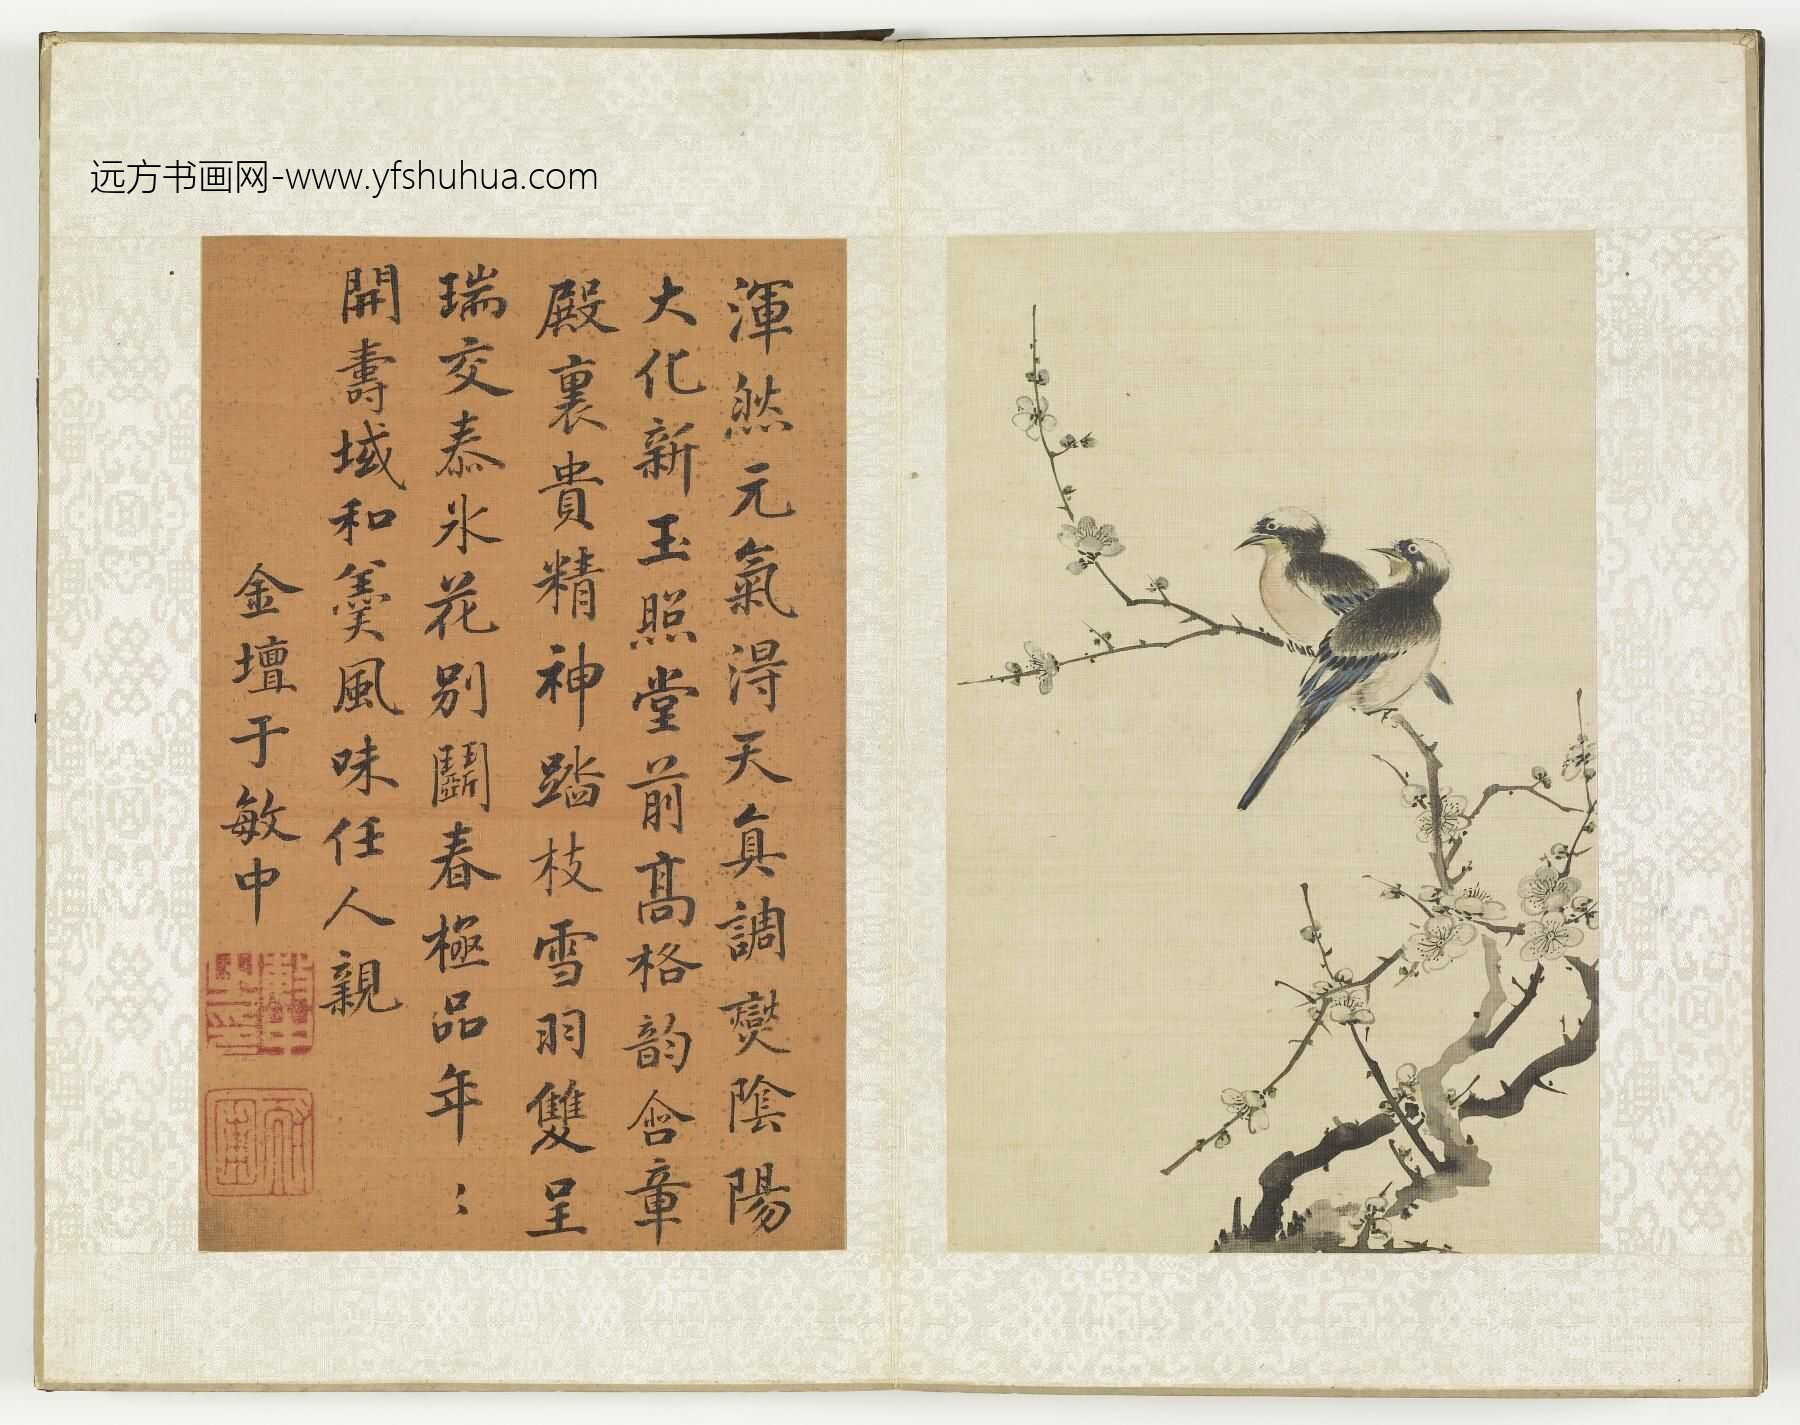 远方书画网-www.yfshuhua.com
渾然元氣淂天真調爕陰陽
大化新玉照堂前高格韵含章
殿裏貴精神踏枝雪羽雙呈
瑞交泰氷花别鬭春極品年〻
開壽域和羹風味任人親
金壇于敏中